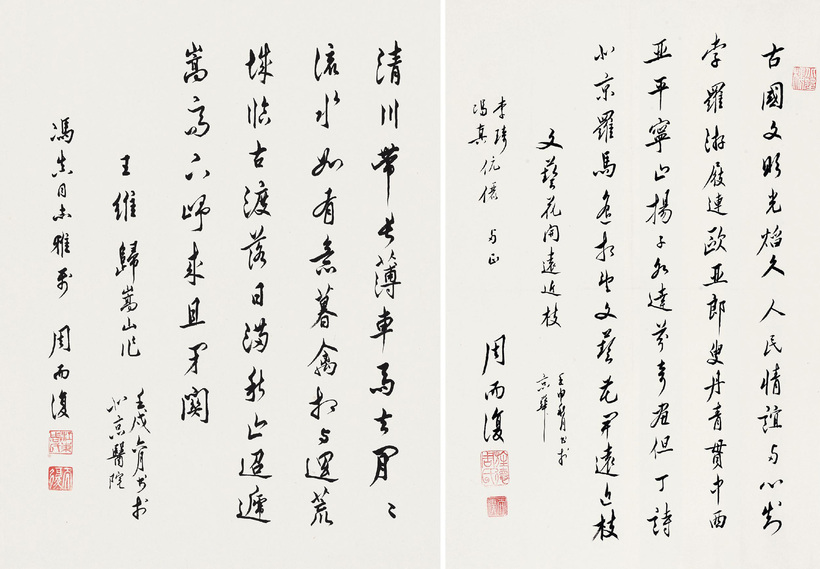 古國文彩光焰久人民情誼与心刻
孛羅游屐連歐亚郎叟丹青貫中西
亚平寧山揚子水達芬奇畫但丁詩
北京羅馬遥相望文藝花開遠近枝
文藝花開遠近枝
壬申 月書於
京華
李琦
馮真 伉儷 正
周而復
清川帶長薄車馬去閒〻
流水如有意暮禽相与還荒
城臨古渡落日滿秋山迢遞
嵩高下歸來且閉關
王維歸嵩山作
壬戌六月書於
北京醫院
馮真同志雅属 周而復